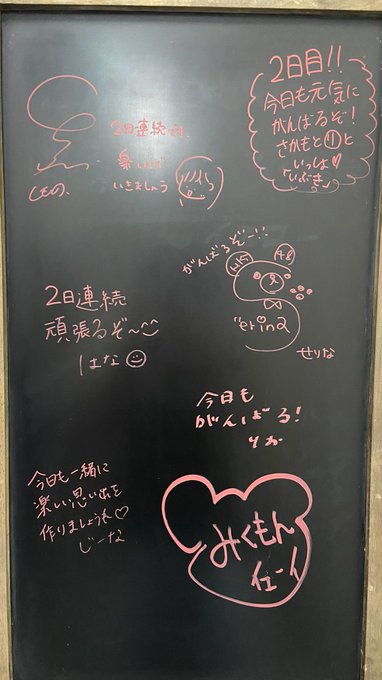 2日目!!
今日も元気に
がんばるぞ!
さかもと(り)と
いっしょ♡
いぶき
2日連続
楽しんで
いきましょう
しの。
がんばるぞー!!
HK
48
"erina
せりな
2日連続
頑張るぞ〜
はな
今日も
がんばる!
りお
今日も一緒に
楽しい思い出を
作りましょうね♡
じーな
みくもん
イェーイ